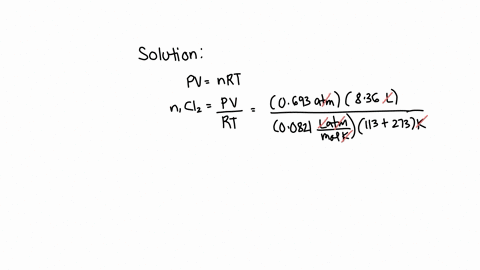 Solution:
PV = nRT
n, Cl₂ = PV/RT = (0.693 atm)(8.36 L)/(0.0821 L·atm/mol K)(113 + 273)K